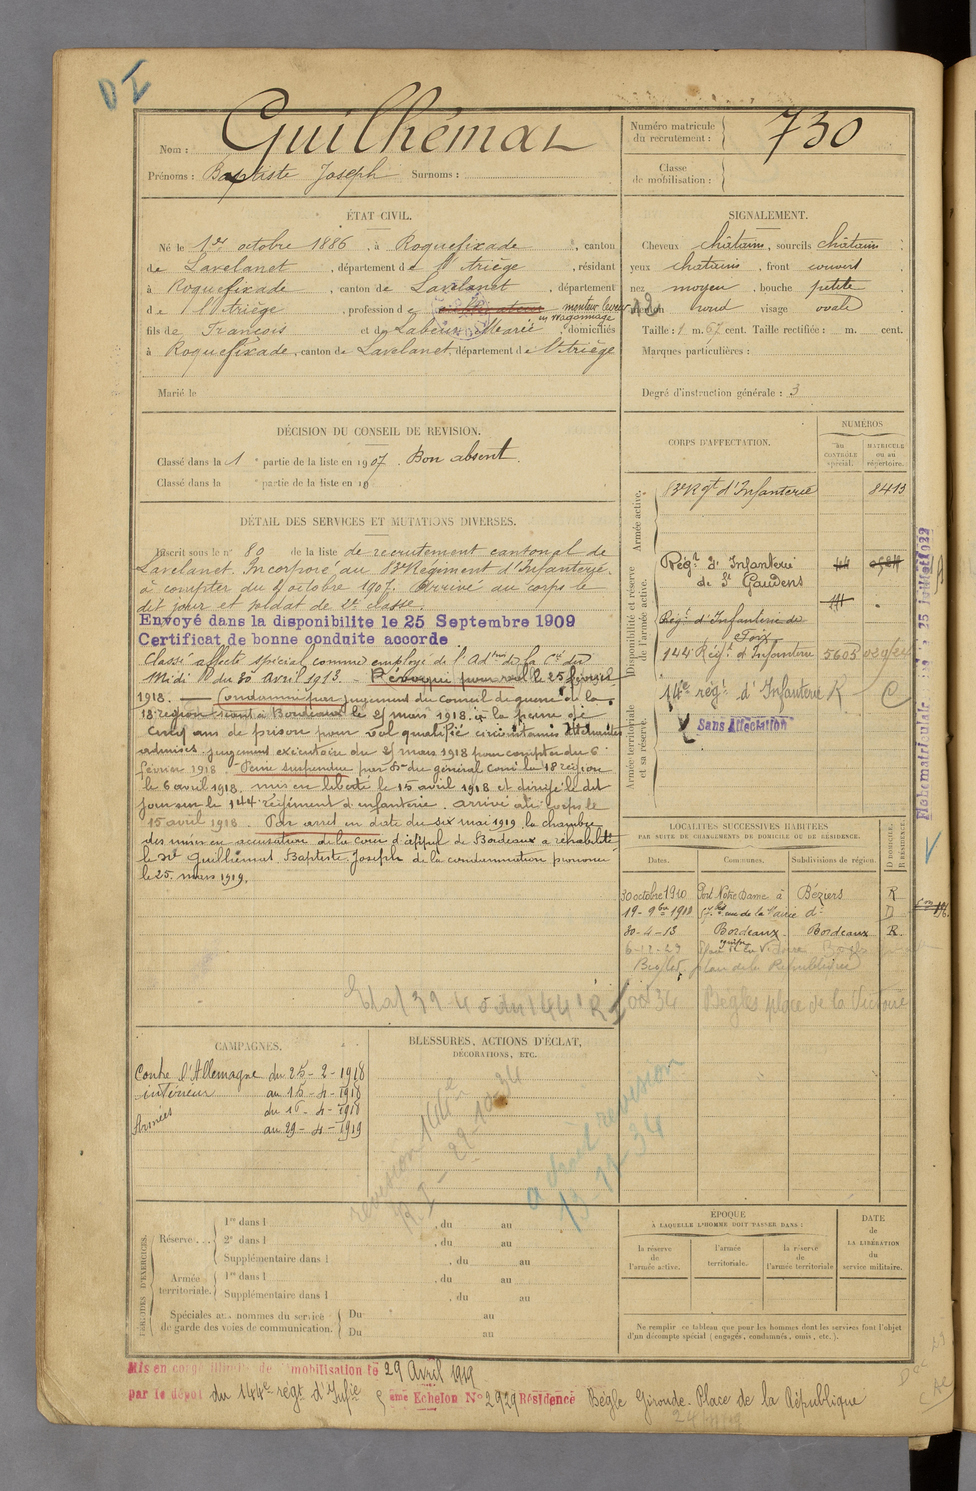 DI
Nom : Guilhémat
Prénoms : Baptiste Joseph Surnoms :
Numéro matricule du recrutement : 730
Classe de mobilisation :
ÉTAT CIVIL.
Né le 1er octobre 1886, à Roquefixade, canton
de Lavelanet, département de l'Ariège, résidant
à Roquefixade, canton de Lavelanet, département
de l'Ariège, profession de monteur leveur
en wagonnage
fils de François et de Labeur Marie, domiciliés
à Roquefixade, canton de Lavelanet, département de l'Ariège
Marié le
SIGNALEMENT.
Cheveux châtains, sourcils châtains
yeux chatains, front couvert
nez moyen, bouche petite
menton rond visage ovale
Taille : 1 m. 67 cent. Taille rectifiée : m. cent.
Marques particulières :
Degré d'instruction générale : 3
DÉCISION DU CONSEIL DE REVISION.
Classé dans la 1e partie de la liste en 1907. Bon absent.
Classé dans la e partie de la liste en 19
DÉTAIL DES SERVICES ET MUTATIONS DIVERSES.
Inscrit sous le n° 80 de la liste de recrutement cantonal de
Lavelanet. Incorporé au 83e Régiment d'Infanterie
à compter du octobre 1907. Arrivé au corps le
dit jour et soldat de 2e classe.
Envoyé dans la disponibilité le 25 Septembre 1909
Certificat de bonne conduite accordé
Classé affecté spécial comme employé de l'Adon de la Cie du
Midi du 30 Avril 1913. Révoqué pour vol le 25 février
1918. Condamné par jugement du Conseil de guerre de la
18 région séant à Bordeaux le 25 mars 1918 à la peine de
cinq ans de prison pour vol qualifié circonstances atténuantes
admises. Jugement exécutoire du 25 mars 1918 pour compter du 6
février 1918. Peine suspendue par on du général comt la 18 région
le 6 avril 1918. mis en liberté le 15 avril 1918 et dirigé le dit
jour sur le 144 régiment d'infanterie. arrivé au corps le
15 avril 1918. Par arrêt en date du six mai 1919 la chambre
des mises en accusation de la cour d'appel de Bordeaux a réhabilité
le dit Guilhémat, Baptiste Joseph de la condamnation prononcée
le 25 mars 1919.
CORPS D'AFFECTATION.
NUMÉROS
au CONTRÔLE spécial.
MATRICULE ou au répertoire.
Armée active.
83e Rgt d'Infanterie 8413
Disponibilité et réserve de l'armée active.
Régt d'Infanterie
de St Gaudens
Régt d'Infanterie de
Foix
144 Régt d'Infanterie 5605
Armée territoriale et sa réserve.
14e régt d'Infanterie R C
Sans Affectation
LOCALITÉS SUCCESSIVES HABITÉES
PAR SUITE DE CHANGEMENTS DE DOMICILE OU DE RÉSIDENCE.
Dates. Communes. Subdivisions de région. D DOMICILE. R RÉSIDENCE.
30 octobre 1910 Port Notre Dame à Béziers R
19-9bre 1910 rue de la Mairie do D
30-4-13 Bordeaux Bordeaux R.
Bègles, place de la République
oct 34 Bègles place de la Victoire
CAMPAGNES.
Contre l'Allemagne du 25-2-1918
intérieur au 15-4-1918
Armées du 16-4-1918
au 29-4-1919
BLESSURES, ACTIONS D'ÉCLAT,
DÉCORATIONS, ETC.
révision
22-10-34
a droit revision
13-12-34
PÉRIODES D'EXERCICES.
Réserve . . .
1re dans l , du au
2e dans l , du au
Supplémentaire dans l , du au
Armée territoriale.
1re dans l , du au
Supplémentaire dans l , du au
Spéciales aux hommes du service de garde des voies de communication.
Du au
Du au
ÉPOQUE
À LAQUELLE L'HOMME DOIT PASSER DANS :
la réserve de l'armée active.
l'armée territoriale.
la réserve de l'armée territoriale
DATE de LA LIBÉRATION du service militaire.
Ne remplir ce tableau que pour les hommes dont les services font l'objet
d'un décompte spécial (engagés, condamnés, omis, etc.).
Mis en congé illimité de démobilisation le 29 Avril 1919
par le dépôt du 144e régt d'Infie 5 ème Echelon No 2929 Résidence Bègle Gironde. Place de la République